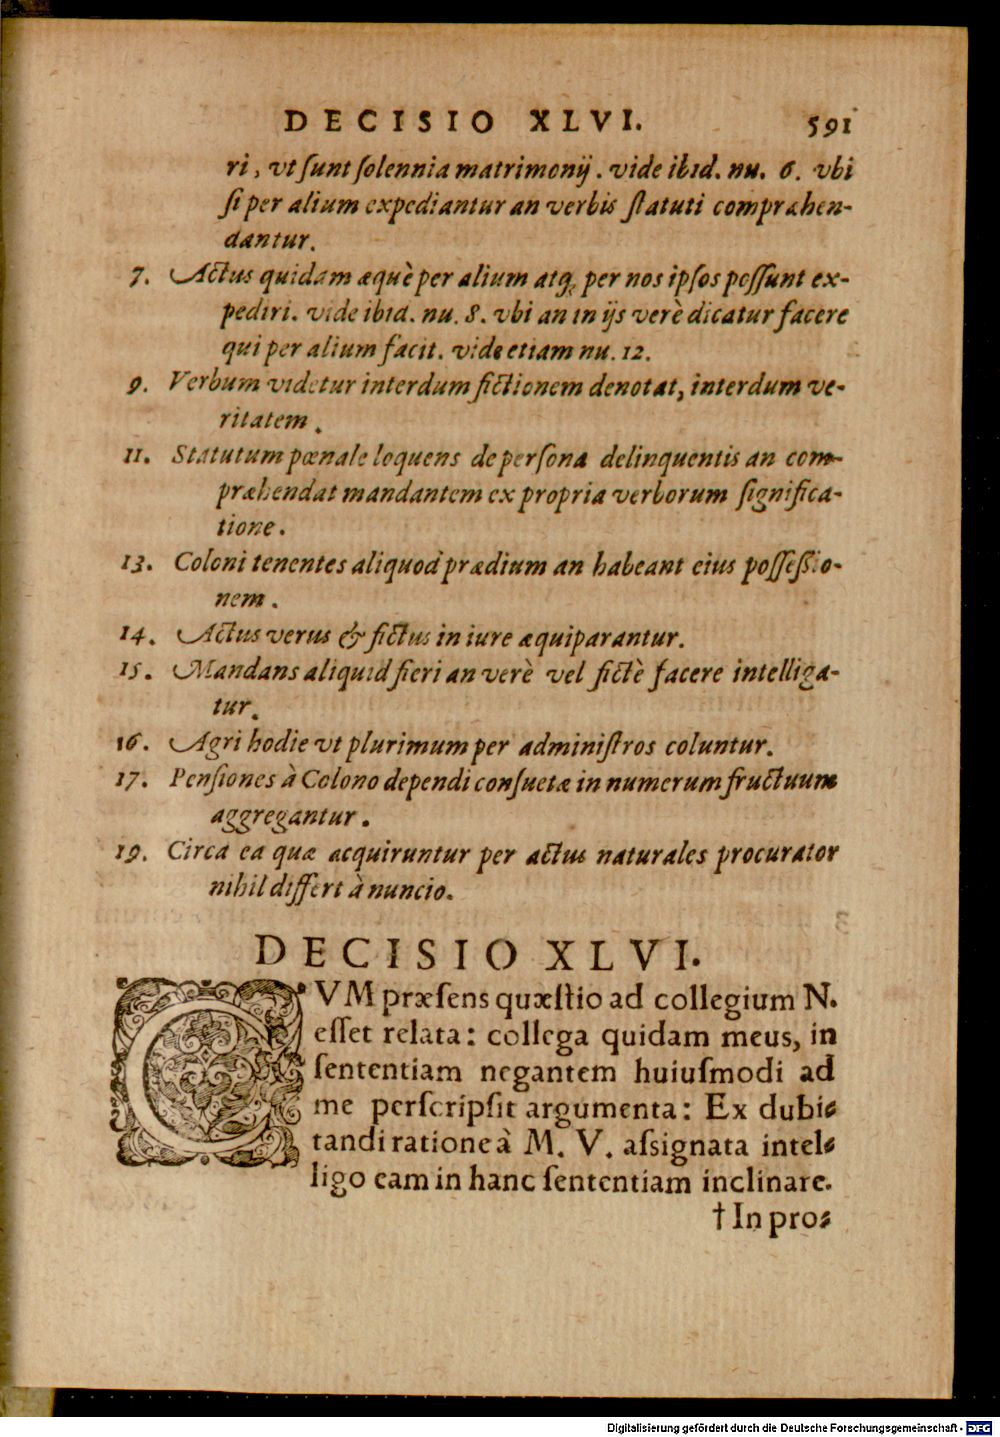 DECISIO XLVI. 591
ri, vt ſunt ſolennia matrimonij. vide ibid. nu. 6. vbi
ſi per alium expediantur an verbis ſtatuti compræhen-
dantur.
7. Actus quidam æquè per alium atq; per nos ipſos poſſunt ex-
pediri. vide ibid. nu. 8. vbi an in ijs verè dicatur facere
qui per alium facit. vide etiam nu. 12.
9. Verbum videtur interdum fictionem denotat, interdum ve-
ritatem.
11. Statutum pœnale loquens de perſona delinquentis an com-
præhendat mandantem ex propria verborum ſignifica-
tione.
13. Coloni tenentes aliquod prædium an habeant eius poſſeſsio-
nem.
14. Actus verus & fictus in iure æquiparantur.
15. Mandans aliquid fieri an verè vel fictè facere intelliga-
tur.
16. Agri hodie vt plurimum per adminiſtros coluntur.
17. Penſiones à Colono dependi conſuetæ in numerum fructuum
aggregantur.
19. Circa ea quæ acquiruntur per actus naturales procurator
nihil differt à nuncio.
DECISIO XLVI.
CVM præſens quæſtio ad collegium N.
eſſet relata: collega quidam meus, in
ſententiam negantem huiuſmodi ad
me perſcripſit argumenta: Ex dubi-
tandi ratione à M. V. aſsignata intel-
ligo eam in hanc ſententiam inclinare.
† In pro-
Digitalisierung gefördert durch die Deutsche Forschungsgemeinschaft - DFG